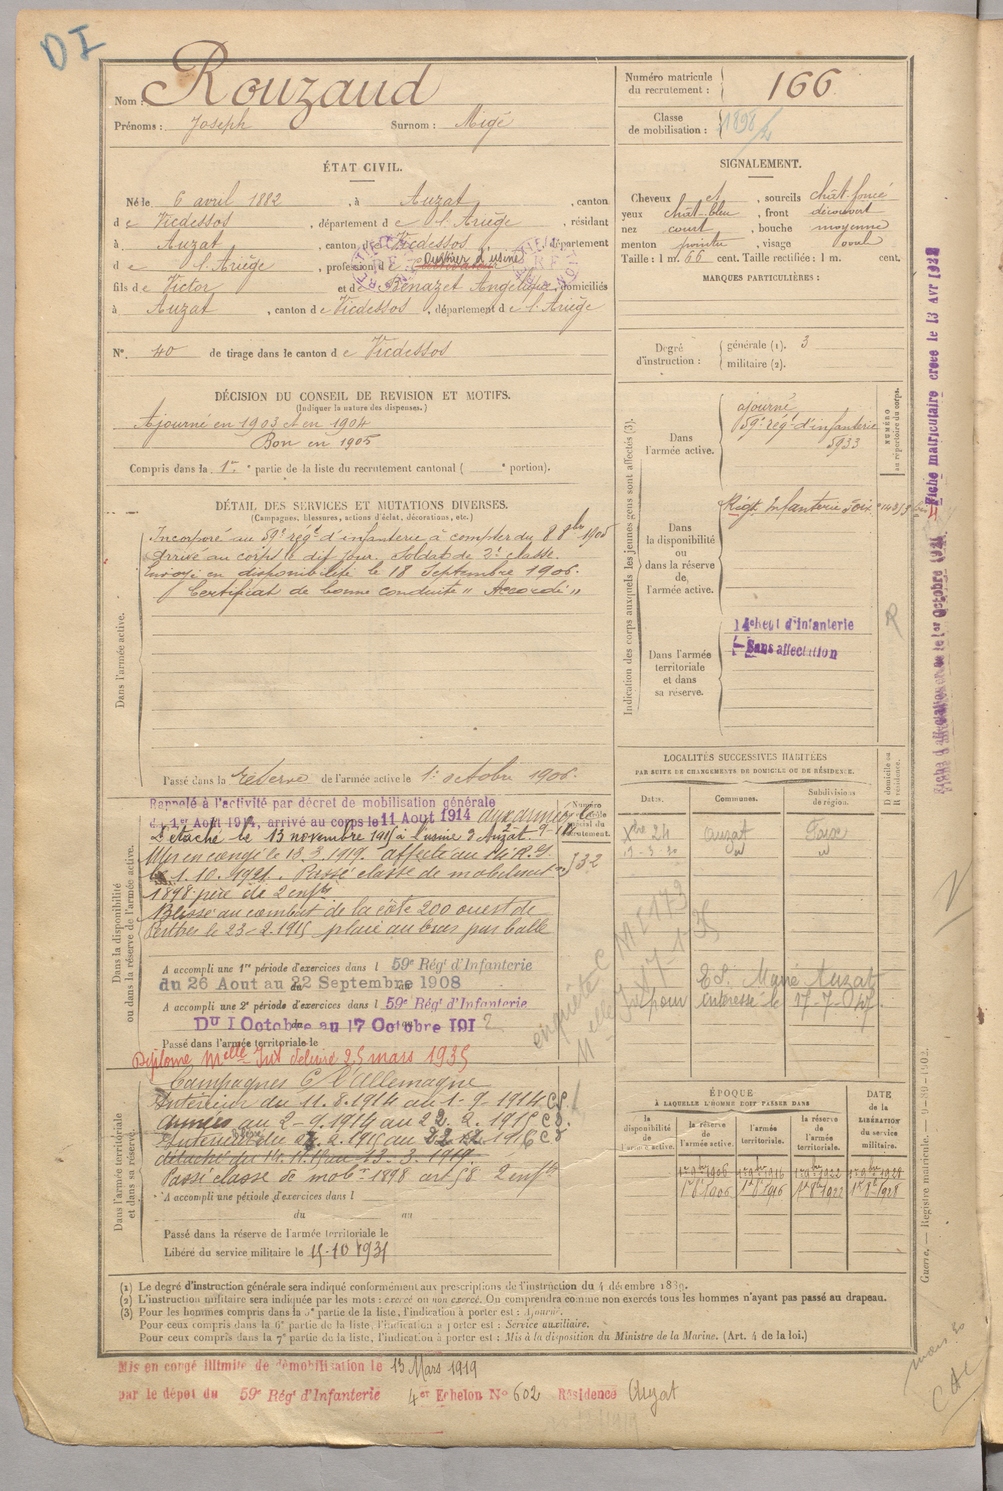 DI
Nom : Rouzaud
Prénoms : Joseph Surnom : Migé
Numéro matricule du recrutement : 166
Classe de mobilisation : 1898
ÉTAT CIVIL.
Né le 6 avril 1882, à Auzat, canton
d e Vicdessos, département d e l'Ariège, résidant
à Auzat, canton de Vicdessos, département
d e l'Ariège, profession d ouvrier d'usine
fils d e Victor et d e Bénazet Angélique, domiciliés
à Auzat, canton d e Vicdessos, département d e l'Ariège
N° 40 de tirage dans le canton d e Vicdessos
SIGNALEMENT.
Cheveux et, sourcils chât-foncé
yeux chât-bleu, front découvert
nez court, bouche moyenne
menton pointu, visage oval
Taille : 1 m. 66 cent. Taille rectifiée : 1 m. cent.
MARQUES PARTICULIÈRES :
Degré d'instruction : générale (1). 3
militaire (2).
DÉCISION DU CONSEIL DE REVISION ET MOTIFS.
(Indiquer la nature des dispenses.)
Ajourné en 1903 et en 1904
Bon en 1905
Compris dans la 1re partie de la liste du recrutement cantonal ( e portion).
DÉTAIL DES SERVICES ET MUTATIONS DIVERSES.
(Campagnes, blessures, actions d'éclat, décorations, etc.)
Dans l'armée active.
Incorporé au 59e régt d'infanterie à compter du 8 8bre 1905
Arrivé au corps le dit jour, soldat de 2e classe.
Envoyé en disponibilité le 18 Septembre 1906.
Certificat de bonne conduite "Accordé"
Passé dans la réserve de l'armée active le 1er octobre 1906.
Dans la disponibilité ou dans la réserve de l'armée active.
Rappelé à l'activité par décret de mobilisation générale
du 1er Août 1914, arrivé au corps le 11 Août 1914 aux armées le 2-9-14
Détaché le 13 novembre 1915 à l'usine d'Auzat
Mis en congé le 13.3.1919. affecté au
le 1.10.1921. Passé classe de mobilisat on
1898 père de 2 enfts
Blessé au combat de la côte 200 ouest de
Perthes le 23-2.1915 plaie au bras par balle
Numéro au contrôle spécial du recrutement.
532
A accompli une 1re période d'exercices dans l 59e Régt d'Infanterie
du 26 Aout au 22 Septembre 1908
A accompli une 2e période d'exercices dans l 59e Régt d'Infanterie
Du 1 Octobre au 17 Octobre 1912
Passé dans l'armée territoriale le
Diplome Melle Inf délivré 25 mars 1935
Dans l'armée territoriale et dans sa réserve.
Campagnes C/ l'Allemagne
Intérieur du 11.8.1914 au 1-9-1914 CS.
Armées au 2-9.1914 au 22.2.1915 CD.
Intérieur du 23.2.1915 au 22 12 1916 CS
détaché du 14.11.15 au 13-3.1919
Passé classe de mobon 1898 art 58 2 enfts
A accompli une période d'exercices dans l
du au
Passé dans la réserve de l'armée territoriale le
Libéré du service militaire le 15-10-1931
Indication des corps auxquels les jeunes gens sont affectés (3).
Dans l'armée active.
ajourné
59e régt d'infanterie
5933
NUMÉRO au répertoire du corps.
Dans la disponibilité ou dans la réserve de l'armée active.
Régt Infanterie Foix
Dans l'armée territoriale et dans sa réserve.
14e Regt d'Infanterie
Sans affectation
R
LOCALITÉS SUCCESSIVES HABITÉES
PAR SUITE DE CHANGEMENTS DE DOMICILE OU DE RÉSIDENCE.
Dates. Communes. Subdivisions de région. D domicile ou R résidence.
Xbre 24 Auzat Foix
13-3-30
enquête C M E 173
Melle 9x17-1-35
ES. Mairie Auzat
intéressé le 17-7-
ÉPOQUE
À LAQUELLE L'HOMME DOIT PASSER DANS
la disponibilité de l'armée active.
la réserve de l'armée active.
l'armée territoriale.
la réserve de l'armée territoriale.
DATE de la LIBÉRATION du service militaire.
1er 9bre 1906 1er 9bre 1916 1er 9bre 1922 1er 9bre 1928
1er 8bre 1906 1er 8bre 1916 1er 8bre 1922 1er 8bre 1928
(1) Le degré d'instruction générale sera indiqué conformément aux prescriptions de l'instruction du 4 décembre 1889.
(2) L'instruction militaire sera indiquée par les mots : exercé ou non exercé. On comprendra comme non exercés tous les hommes n'ayant pas passé au drapeau.
(3) Pour les hommes compris dans la 5e partie de la liste, l'indication à porter est : Ajourné.
Pour ceux compris dans la 6e partie de la liste, l'indication à porter est : Service auxiliaire.
Pour ceux compris dans la 7e partie de la liste, l'indication à porter est : Mis à la disposition du Ministre de la Marine. (Art. 4 de la loi.)
Mis en congé illimité de démobilisation le 13 Mars 1919
par le dépot du 59e Régt d'Infanterie 4er Echelon N° 602 Résidence Auzat
Fiche matriculaire créée le 13 AVR 1928
Fiche d'affectation créée le 1er Octobre 1921
Guerre. — Registre matricule. — 9-89-1902.